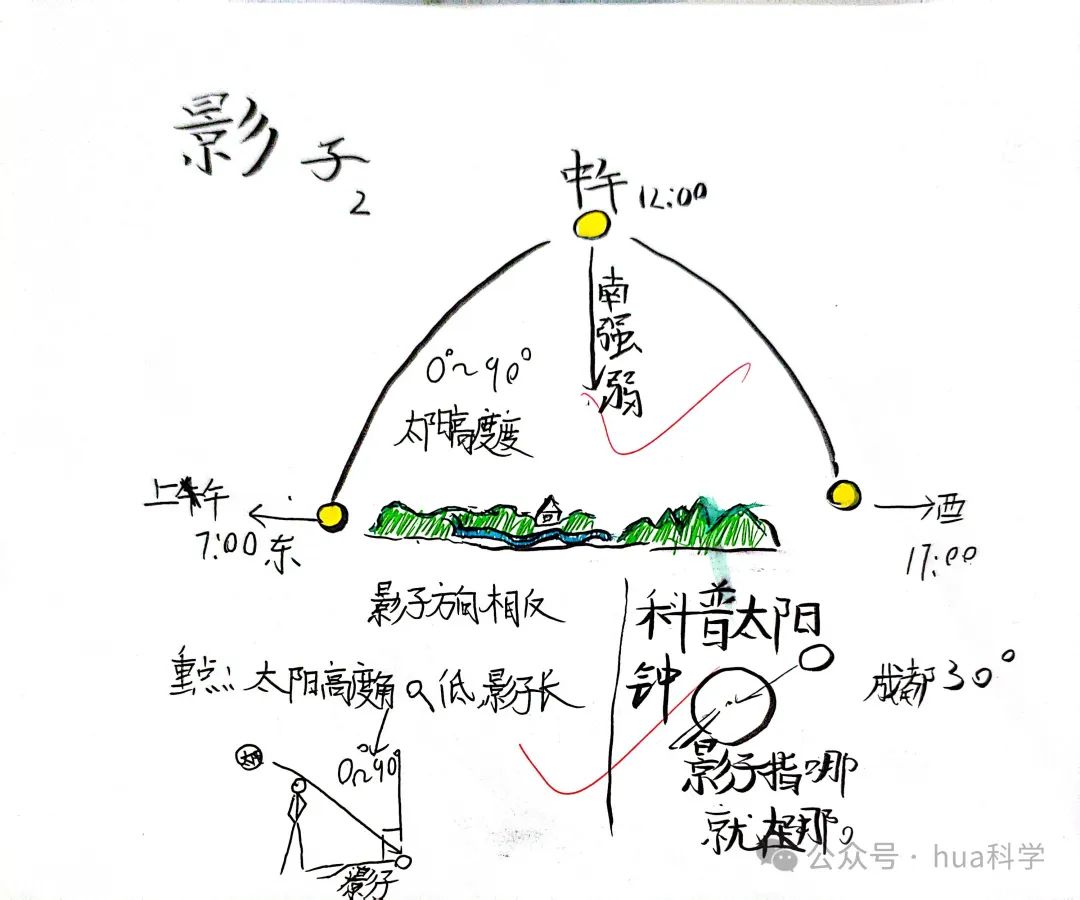 影子
2
中午 12:00
南
强
弱
0°~90°
太阳高度
上午
7:00 东
酉
17:00
影子方向相反
重点：太阳高度角 低，影子长
0~90°
太阳
影子
科普太阳
钟
成都30°
影子指哪
就在那。
公众号·hua科学